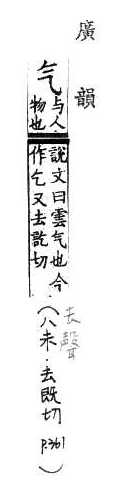 廣韻
气
与人
物也
說文曰雲气也今
作乞又去訖切
去聲
(八未.去既切 p.361)